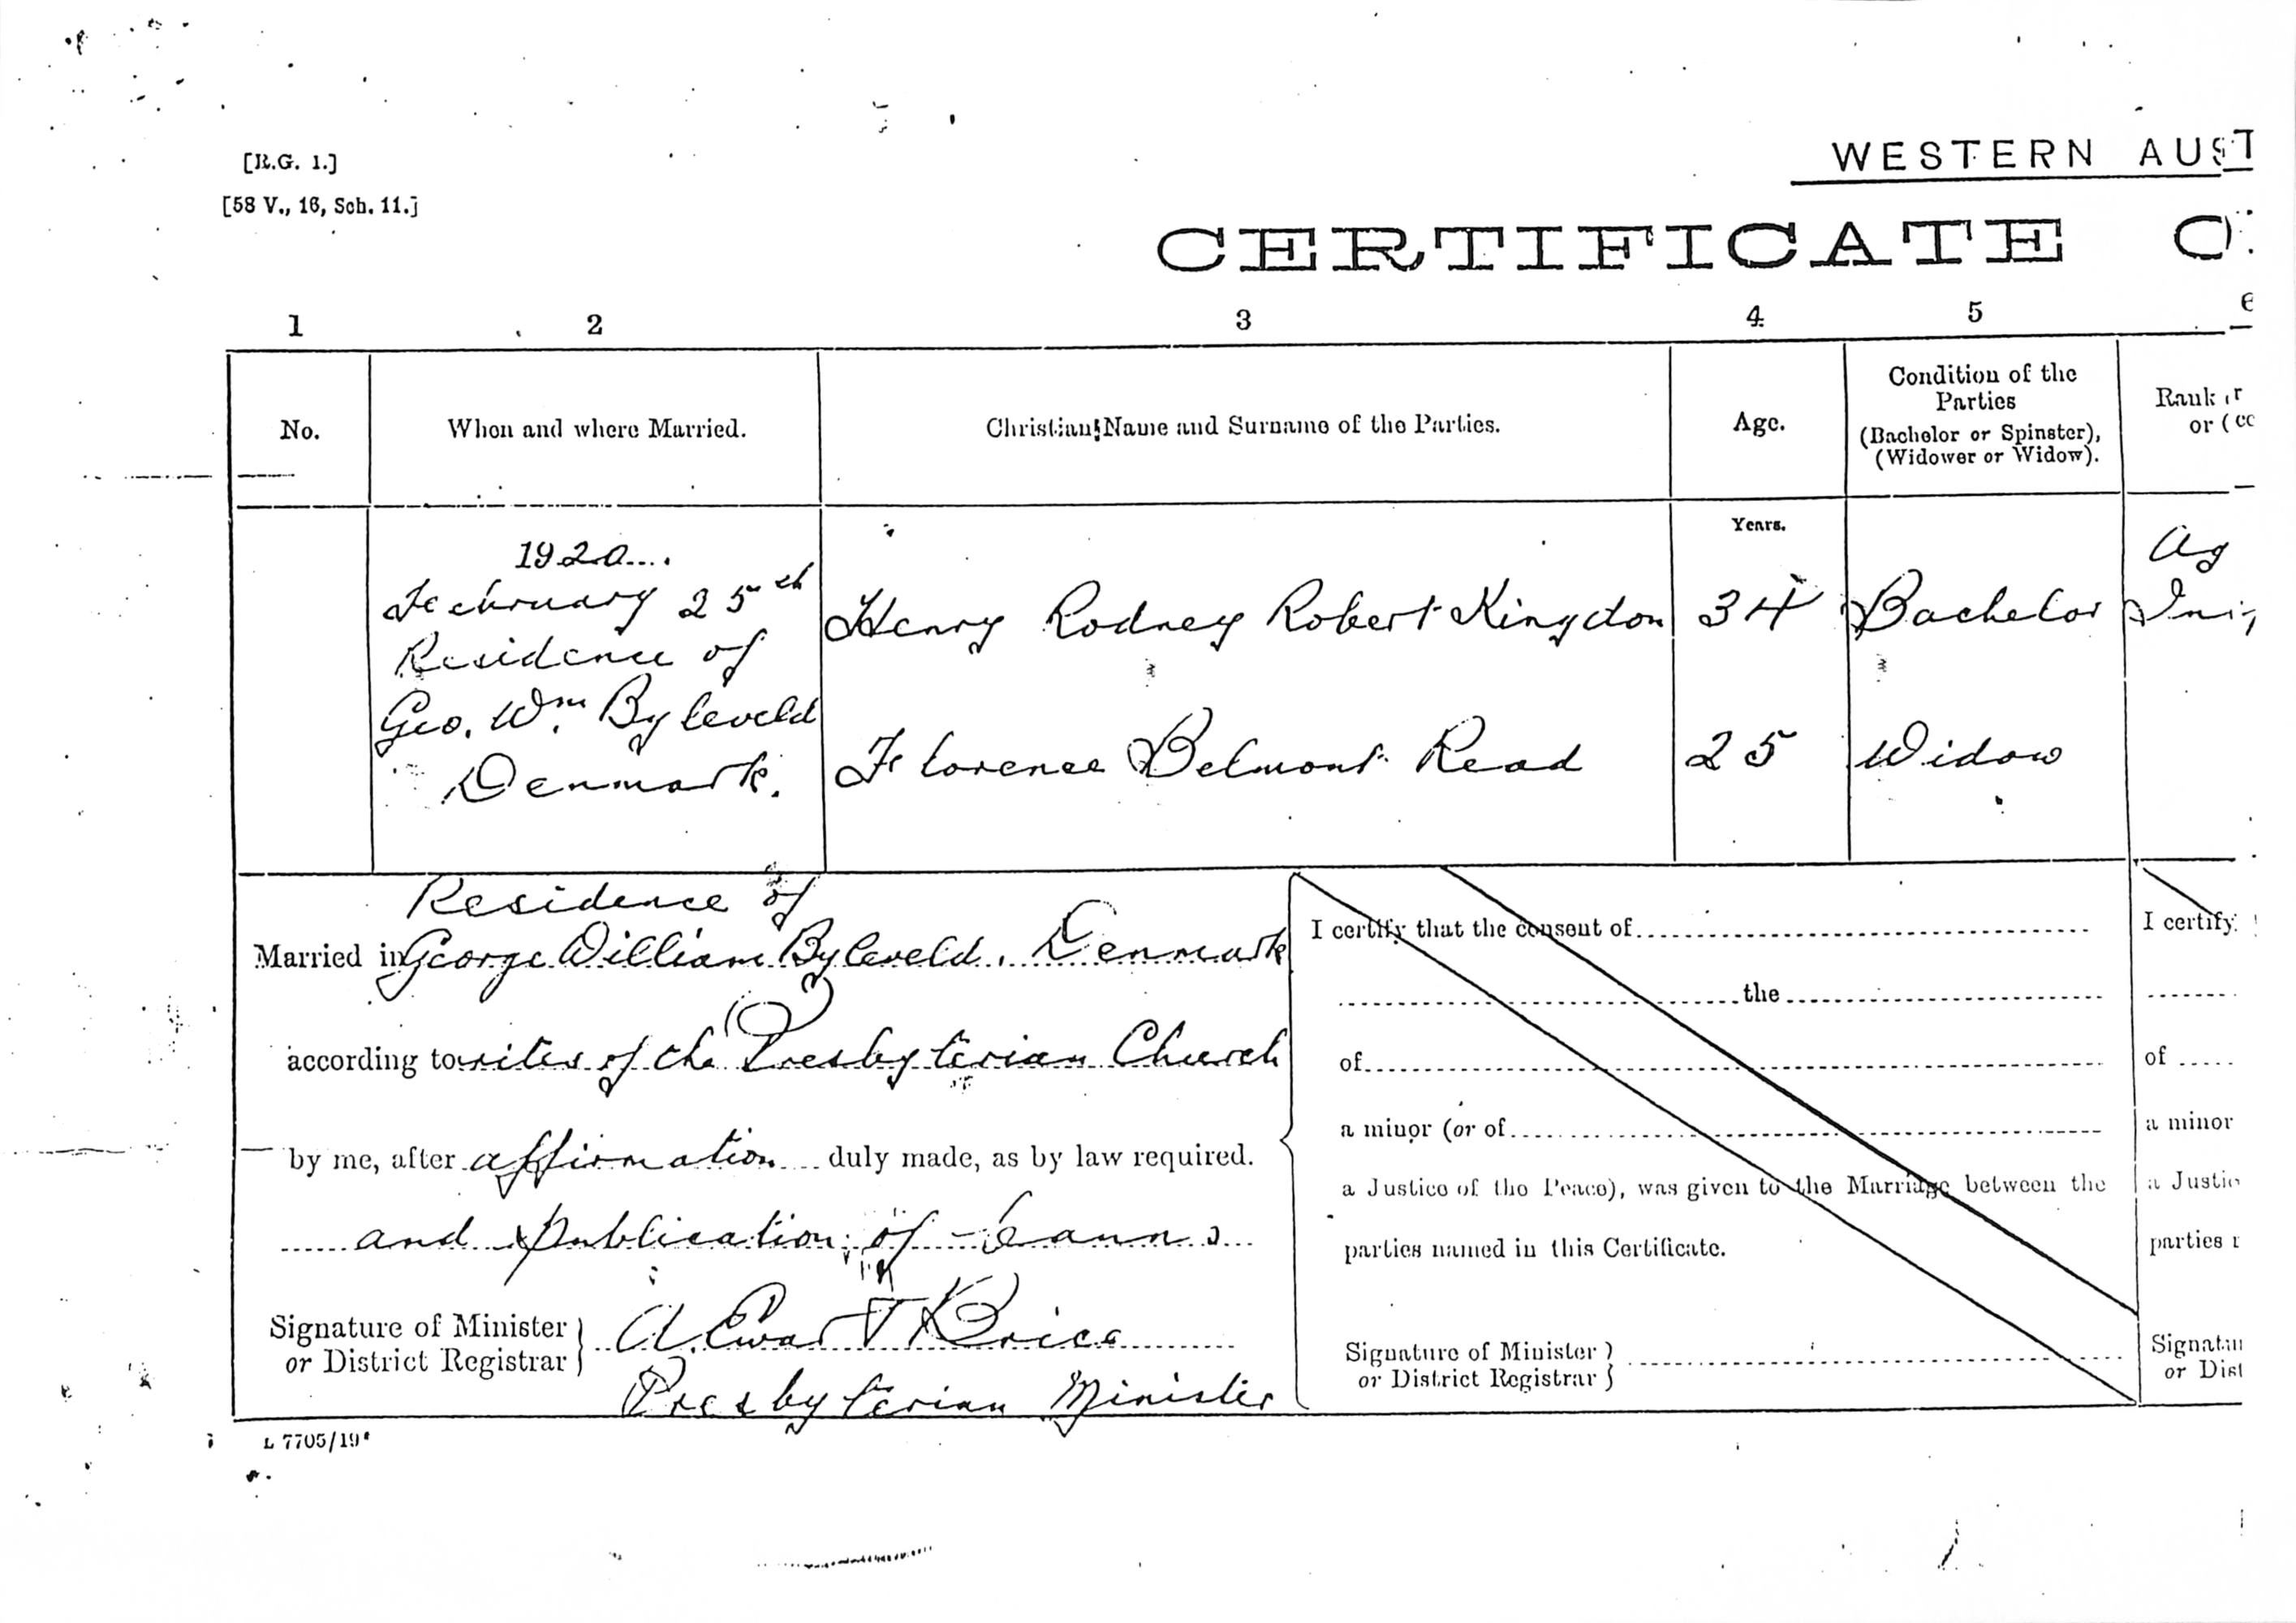 [R.G. 1.]
[58 V., 16, Sch. 11.]
WESTERN AUST
CERTIFICATE O
1 2 3 4 5 6
No.
When and where Married.
Christian Name and Surname of the Parties.
Age.
Condition of the
Parties
(Bachelor or Spinster),
(Widower or Widow).
Rank or
or (cc
Years.
1920....
February 25th
Residence of
Geo. Wm. Byleveld
Denmark.
Henry Rodney Robert Kingdon
34
Bachelor
Ag
Florence Belmont Read
25
Widow
Residence of
Married in George William Byleveld. Denmark
according to rites of the Presbyterian Church
by me, after affirmation duly made, as by law required.
and publication of banns
Signature of Minister
or District Registrar
A. Ewart Brice
Presbyterian Minister
I certify that the consent of
the
of
a minor (or of
a Justice of the Peace), was given to the Marriage between the
parties named in this Certificate.
Signature of Minister
or District Registrar
I certify
of
a minor
a Justic
parties
Signatu
or Dist
L 7705/19